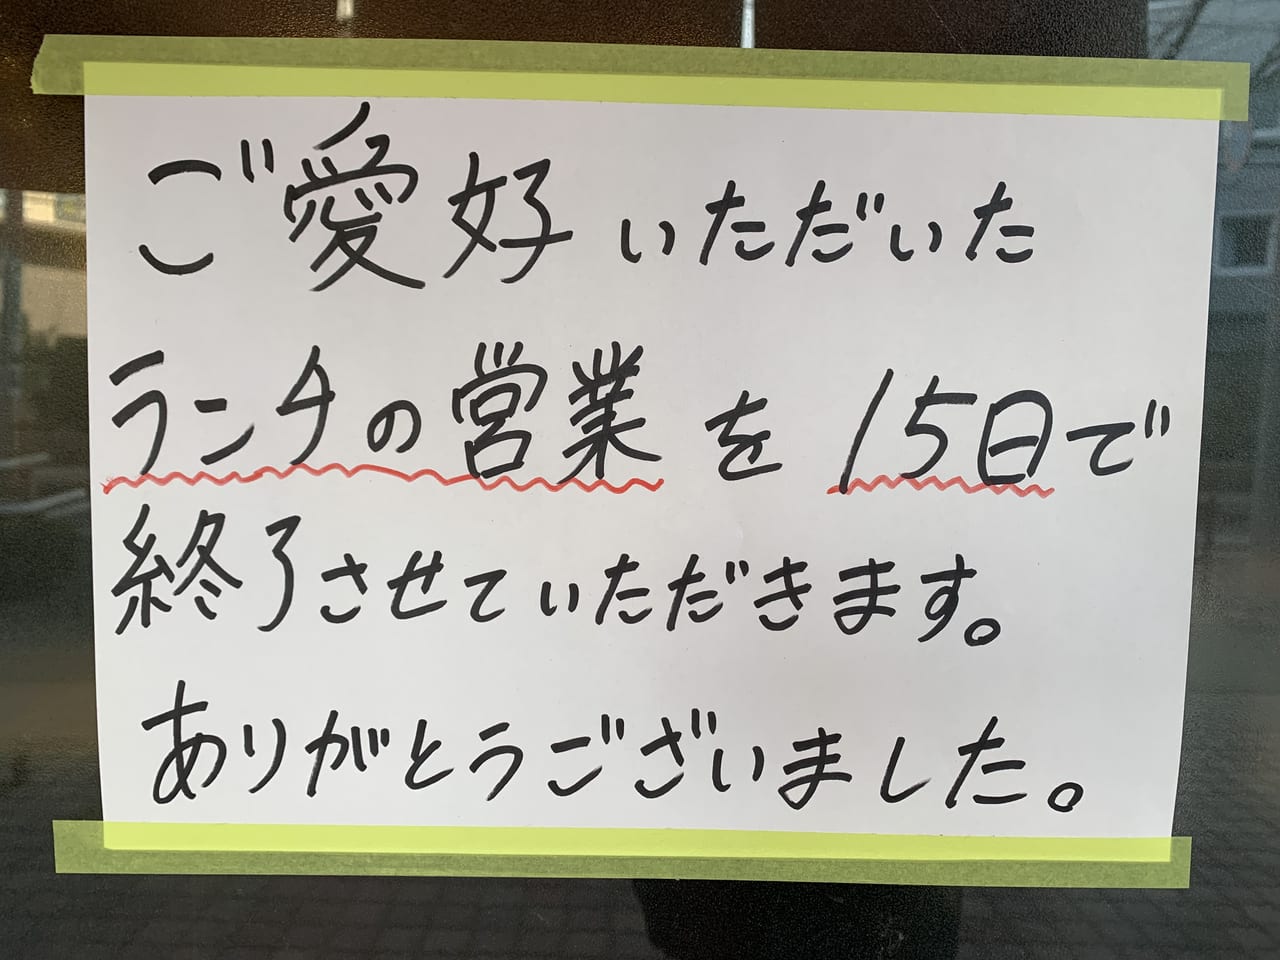 ご愛好いただいた
ランチの営業を15日で
終了させていただきます。
ありがとうございました。